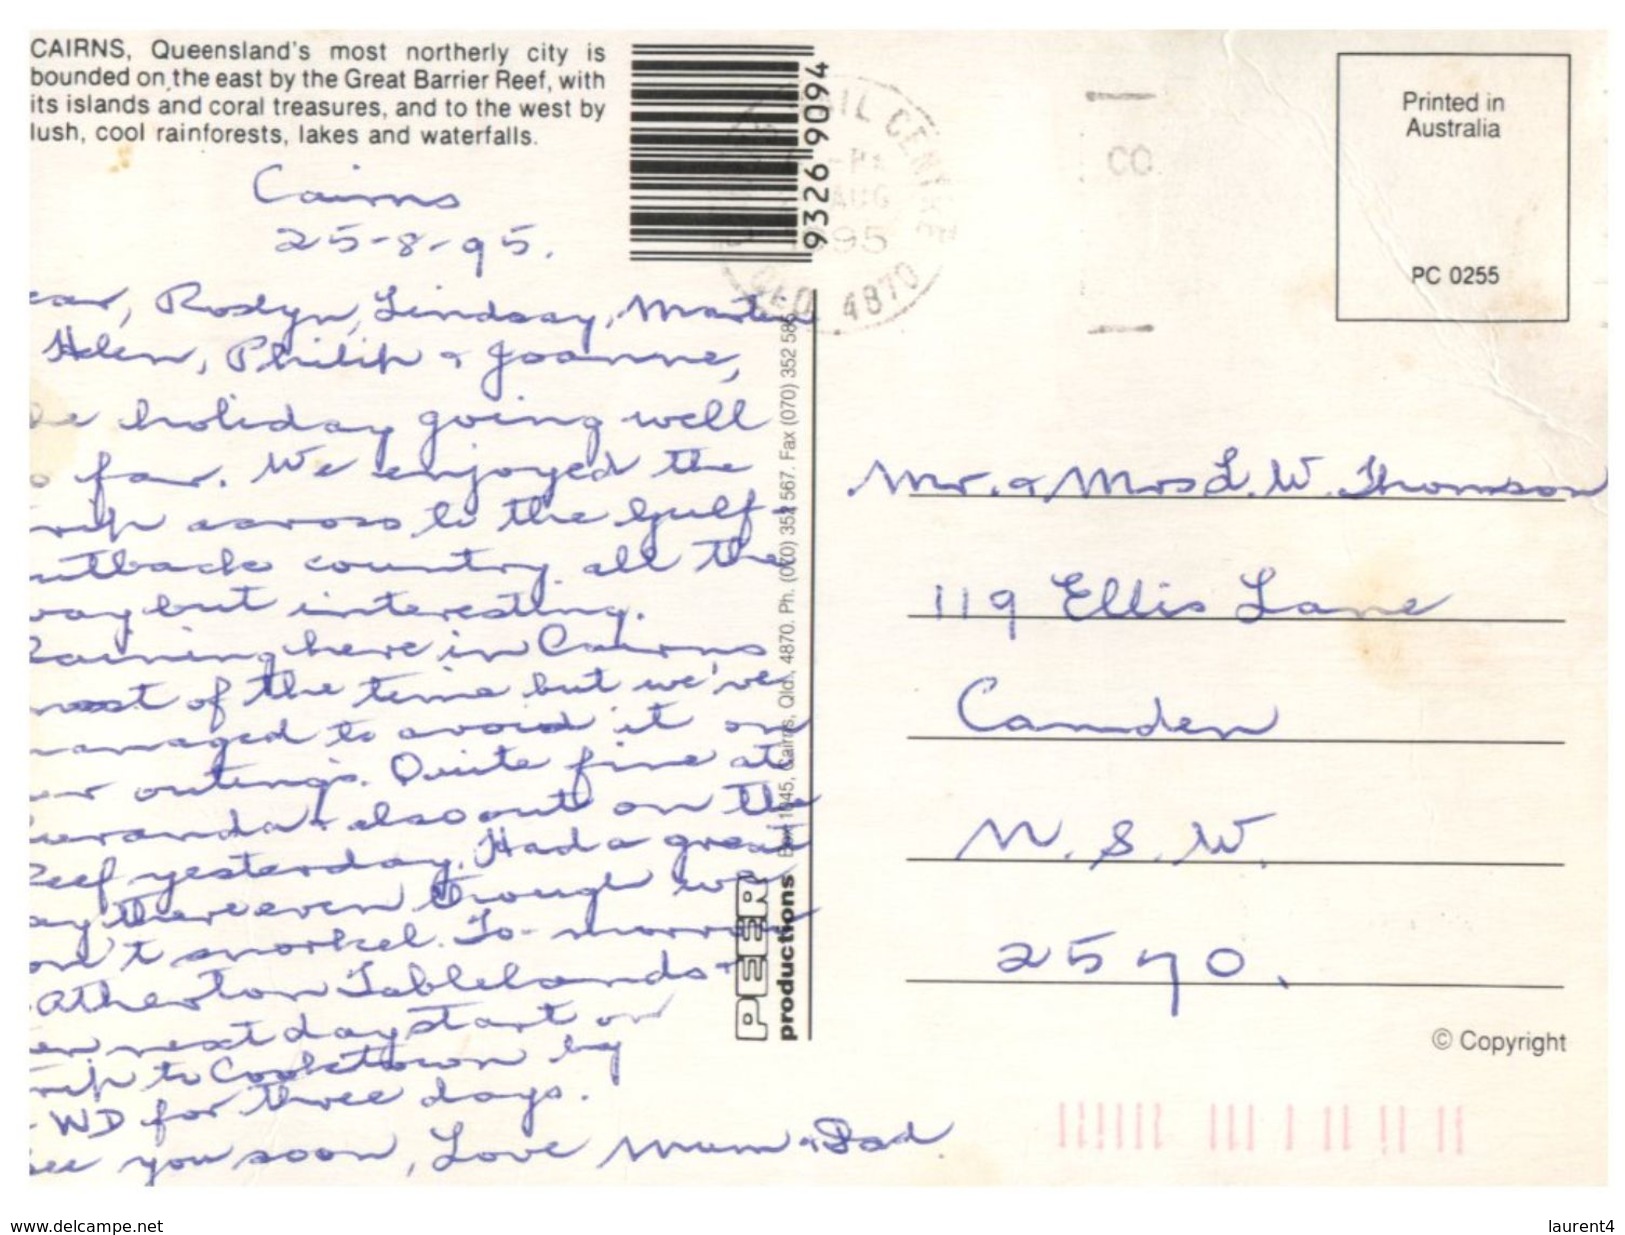 CAIRNS, Queensland's most northerly city is
bounded on the east by the Great Barrier Reef, with
its islands and coral treasures, and to the west by
lush, cool rainforests, lakes and waterfalls.
Cairns
25-8-95.
ear, Roslyn, Lindsay, Martin
Helen, Philip & Joanne,
he holiday going well
o far. We enjoyed the
rip across to the Gulf
utback country all the
way but interesting.
Raining here in Cairns
most of the time but we've
managed to avoid it on
our outings. Quite fine at
uranda & also out on the
Reef yesterday. Had a great
ay there even though we
on't snorkel. To-morrow
Atherton Tablelands &
en next day start our
rip to Cooktown by
WD for three days.
See you soon, Love Mum & Dad.
9326 9094
MAIL CENTRE
AUG
1995
QLD 4870
CO
Printed in
Australia
PC 0255
PEER
productions Box 1045, Cairns, Qld., 4870. Ph. (070) 352 567. Fax (070) 352 586
Mr. & Mrs L. W. Thomson
119 Ellis Lane
Camden
N. S. W.
2570.
© Copyright
www.delcampe.net
laurent4